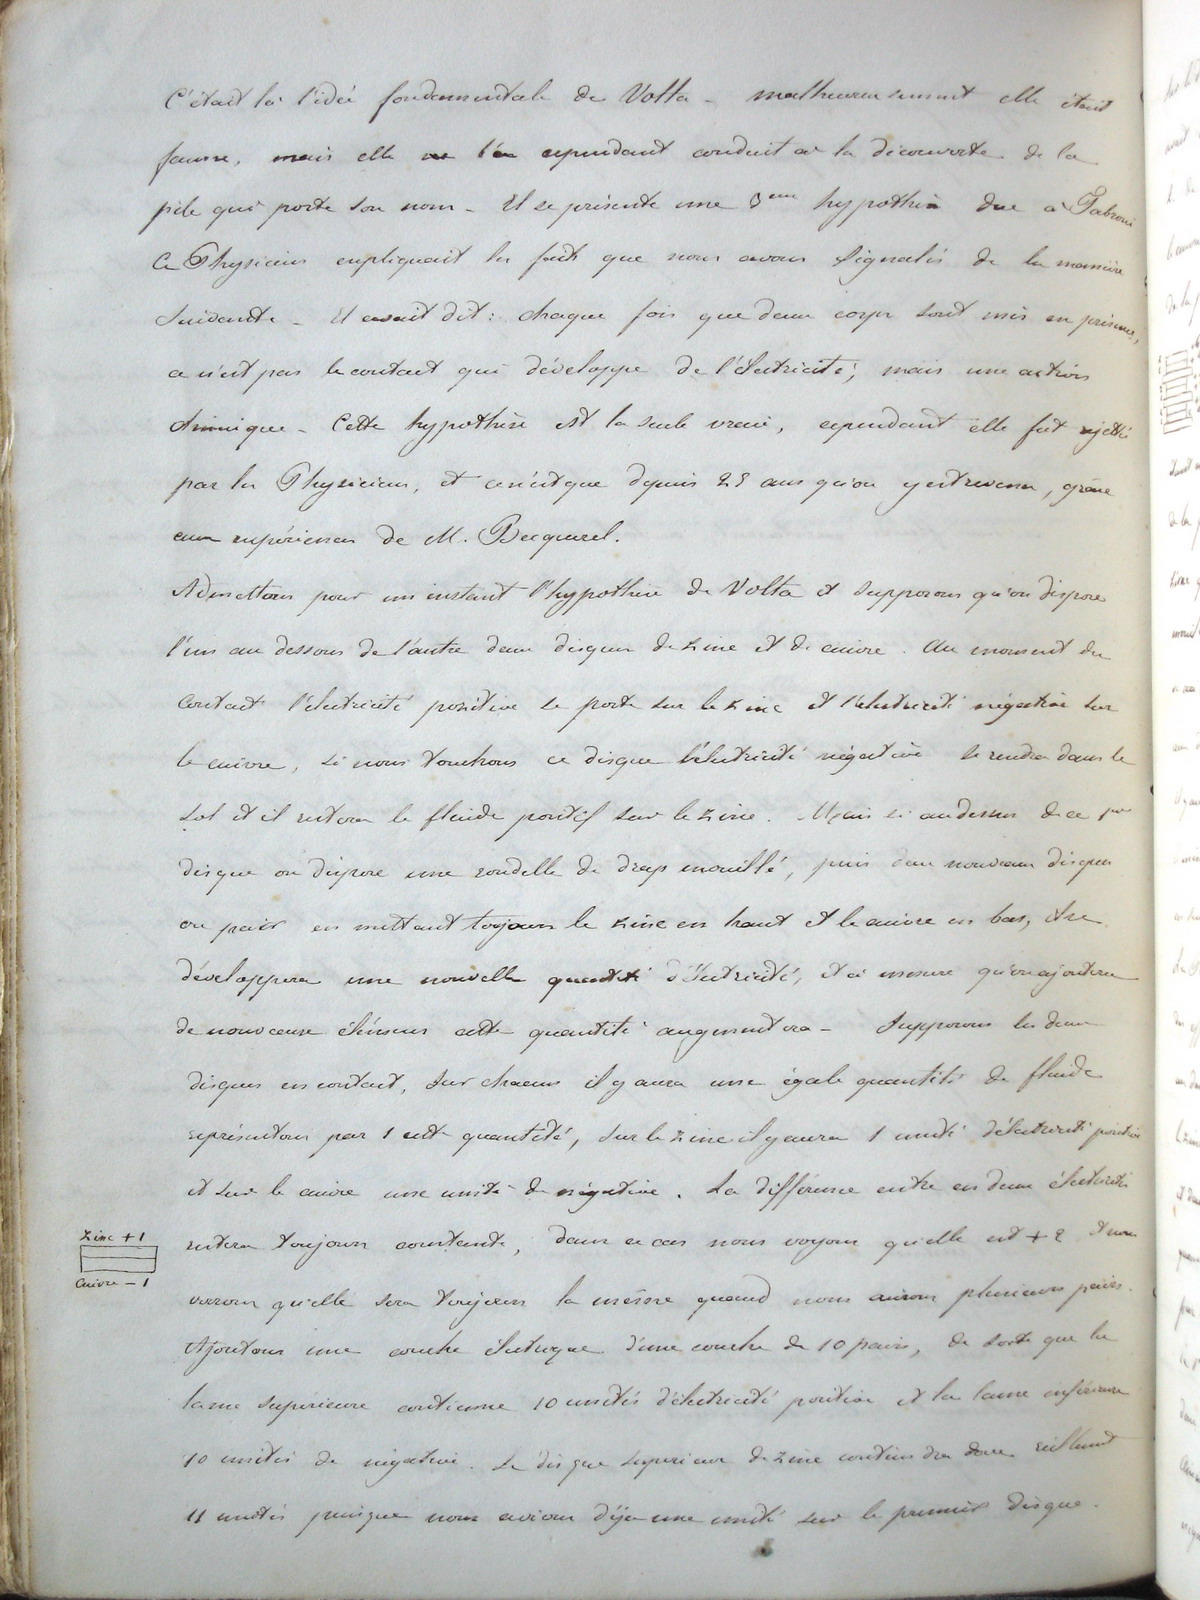 C'était là l'idée fondamentale de Volta - malheureusement elle était
fausse, mais elle l'a cependant conduit à la découverte de la
pile qui porte son nom - Il se présente une 3eme hypothèse due à Fabroni
Ce Physicien expliquait les faits que nous avons signalés de la manière
suivante - Il avait dit: chaque fois que deux corps sont mis en présence,
ce n'est pas le contact qui développe de l'électricité, mais une action
chimique - Cette hypothèse est la seule vraie, cependant elle fut rejetée
par les Physiciens, et ce n'est que depuis 25 ans qu'on y est revenu, grâce
aux expériences de M. Becquerel.
Admettons pour un instant l'hypothèse de Volta et supposons qu'on dispose
l'un au dessous de l'autre deux disques de zinc et de cuivre. Au moment du
contact l'électricité positive se porte sur le zinc et l'électricité négative sur
le cuivre, si nous touchons ce disque l'électricité négative se rendra dans le
sol et il restera le fluide positif sur le zinc. Mais si au dessus de ce pr
disque on dispose une rondelle de drap mouillé, puis deux nouveaux disques
ou paire en mettant toujours le zinc en haut et le cuivre en bas, il se
développera une nouvelle quantité d'électricité, et à mesure qu'on ajoutera
de nouveaux éléments cette quantité augmentera - Supposons les deux
disques en contact, sur chacun il y aura une égale quantité de fluide
représentons par 1 cette quantité, sur le zinc il y aura 1 unité d'électricité positive
et sur le cuivre une unité de négative. La différence entre ces deux électricités
restera toujours constante, dans ce cas nous voyons qu'elle est +2 et nous
zinc +1
cuivre - 1
verrons qu'elle sera toujours la même quand nous aurons plusieurs paires.
Ajoutons une couche électrique d'une couche de 10 paires, de sorte que la
lame supérieure contienne 10 unités d'électricité positive et la lame inférieure
10 unités de négative. Le disque supérieur de zinc contiendra donc réellement
11 unités puisque nous avions déjà une unité sur le premier disque.